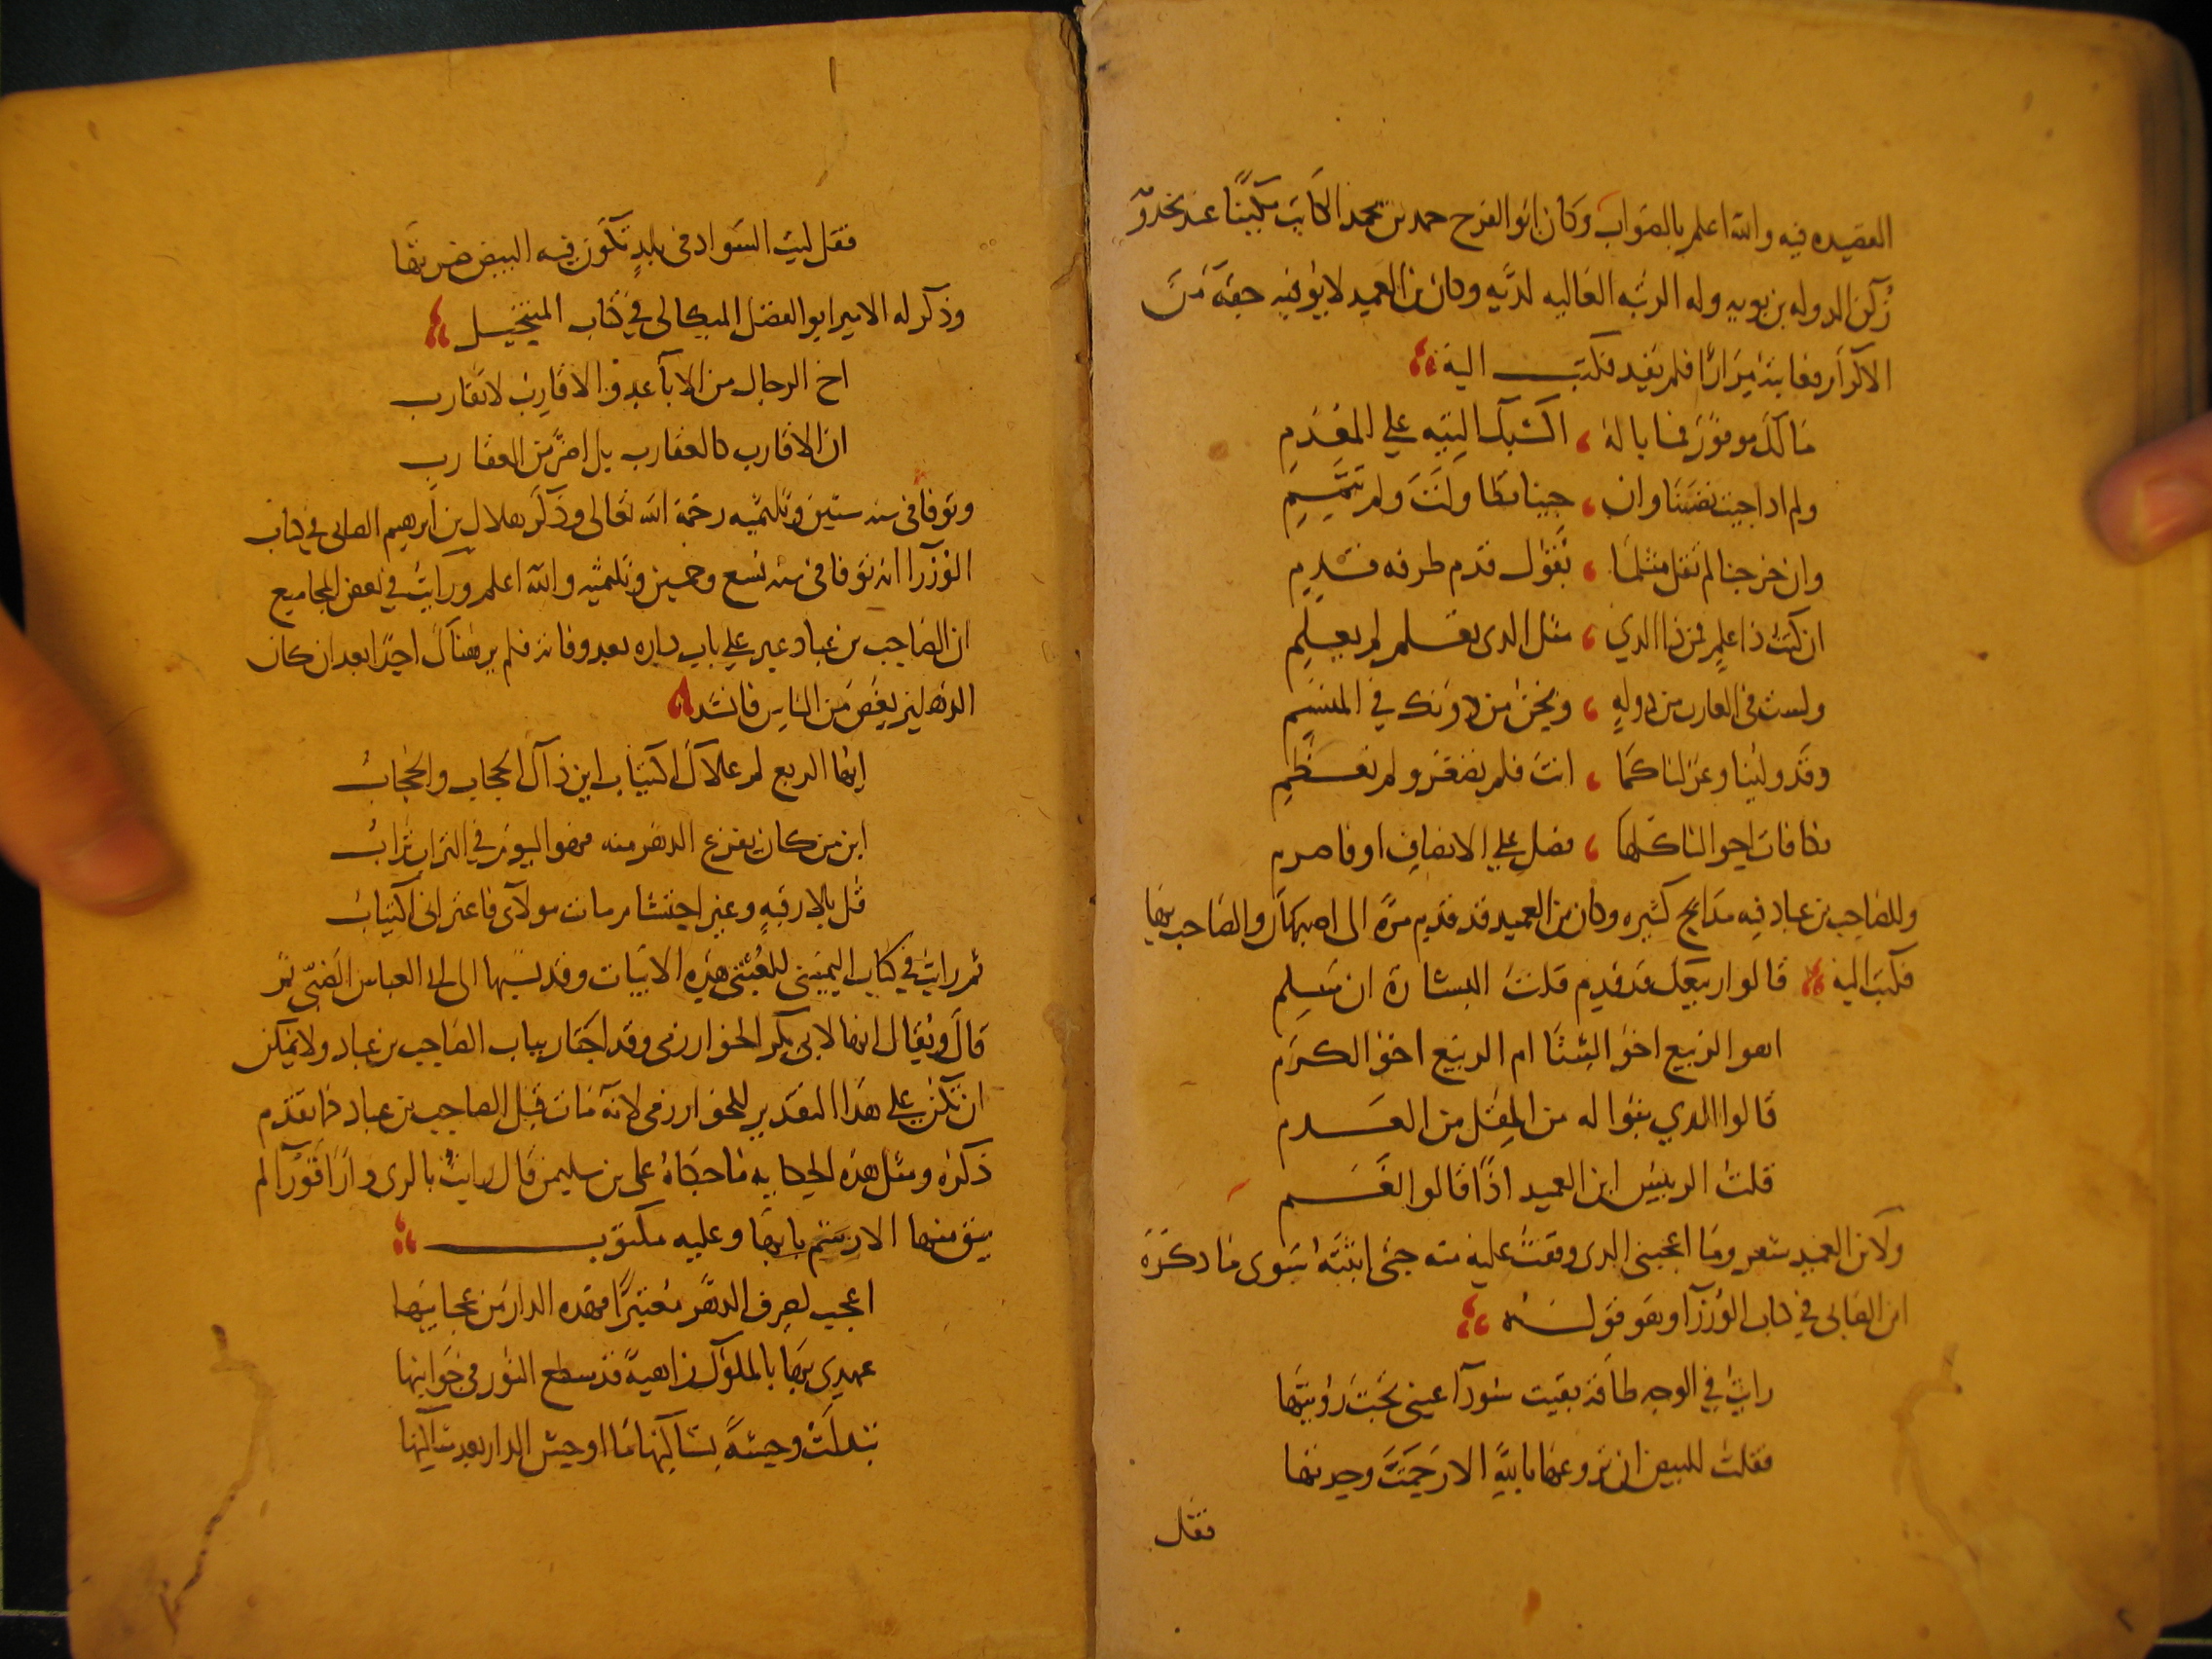 العصيده فيه والله اعلم بالصواب وكان ابو الفرج حمد بن محمد الكاتب مكينًا عند مخدومه
ركن الدوله بن بويه وله الرتبه العاليه لديه وكان بن العميد لا يوفيه حقه من
الاكرام فعاتبه مرارًا فلم يفيد فكتب اليه
مالك موفور فما باله ، اكسبك التيه علي المعدم
ولم اذا جيت نهضنا وان ، جينا تطاولت ولم تتمم
وان خرجنا لم تقل مثلما ، نقول قدم طرفه قدم
ان كنت ذا علم فمن ذا الذي ، مثل الذي تعلم لم يعلم
ولست في الغارب من دولهٍ ، ونحن من دونك في المنسم
وقد ولينا وعزلنا كما ، انت فلم نصغر ولم تعظم
تكافات احوالنا كلها ، فصل علي الانصاف او فاصرم
وللصاحب بن عباد فيه مدايح كثيره وكان بن العميد قد قدم مرة الى اصبهان والصاحب بها
فكتب اليه قالوا ربيعك قد قدم قلت البشارة ان سلم
اهو الربيع اخو الشتا ام الربيع اخو الكرم
قالوا الذي بنواله من المقل من العدم
قلت الرييس ابن العميد اذًا قالوا نعم
ولابن العميد شعر وما اعجبني الذي وقفت عليه منه حتى اثبته سوى ما ذكره
ابن الصابي في كتاب الوزرا وهو قوله
رايت في الوجه طاقة بقيت سودآ عيني تحب رؤيتها
فقلت للبيض اذ تروعها بالله الا رحمت وحدتها
فقل
فقل لبث السواد في بلدٍ تكون فيه البيض ضرتها
وذكر له الامير ابو الفضل الميكالي في كتاب المنتخيل
اخ الرجال من الاباعد والاقارب لا تقارب
ان الاقارب كالعقارب بل اضر من العقارب
وتوفا في سنه ستين وثلثميه رحمة الله تعالى وذكر هلال بن ابرهيم الصابي في كتاب
الوزرا انه توفا في سنه تسع وخمسين وثلثميه والله اعلم ورايت في بعض المجاميع
ان الصاحب بن عباد عبر علي باب داره بعد وفاته فلم ير هناك احدًا بعد ان كان
الدهليز يغص من الناس فانشد
ايها الربع لم علاك اكتياب اين ذاك الحجاب والحجاب
اين من كان يفزع الدهر منه فهو اليوم في التراب تراب
قل بلا رقبهٍ وغير احتشام مات مولاى فاعتراني اكتياب
ثم رايت في كتاب اليميني للعتبي هذه الابيات وقد نسبها الى ابي العباس الضبي ثم
قال ويقال انها لابي بكر الخوارزمي وقد اجتاز بباب الصاحب بن عباد ولا يمكن
ان تكون علي هذا التقدير للخوارزمي لانه مات قبل الصاحب بن عباد كما تقدم
ذكره ومثل هذه الحكايه ما حكاه على بن سليمن قال رايت بالرى دارًا قورآ لم
يبق منها الا رسم بابها وعليه مكتوب
اعجب لصرف الدهر معتبرًا فهذه الدار من عجايبها
عهدي بها بالملوك زاهية قد سطع النور في جوانبها
تبدلت وحشةً بساكنها ما اوحش الدار بعد ساكنها